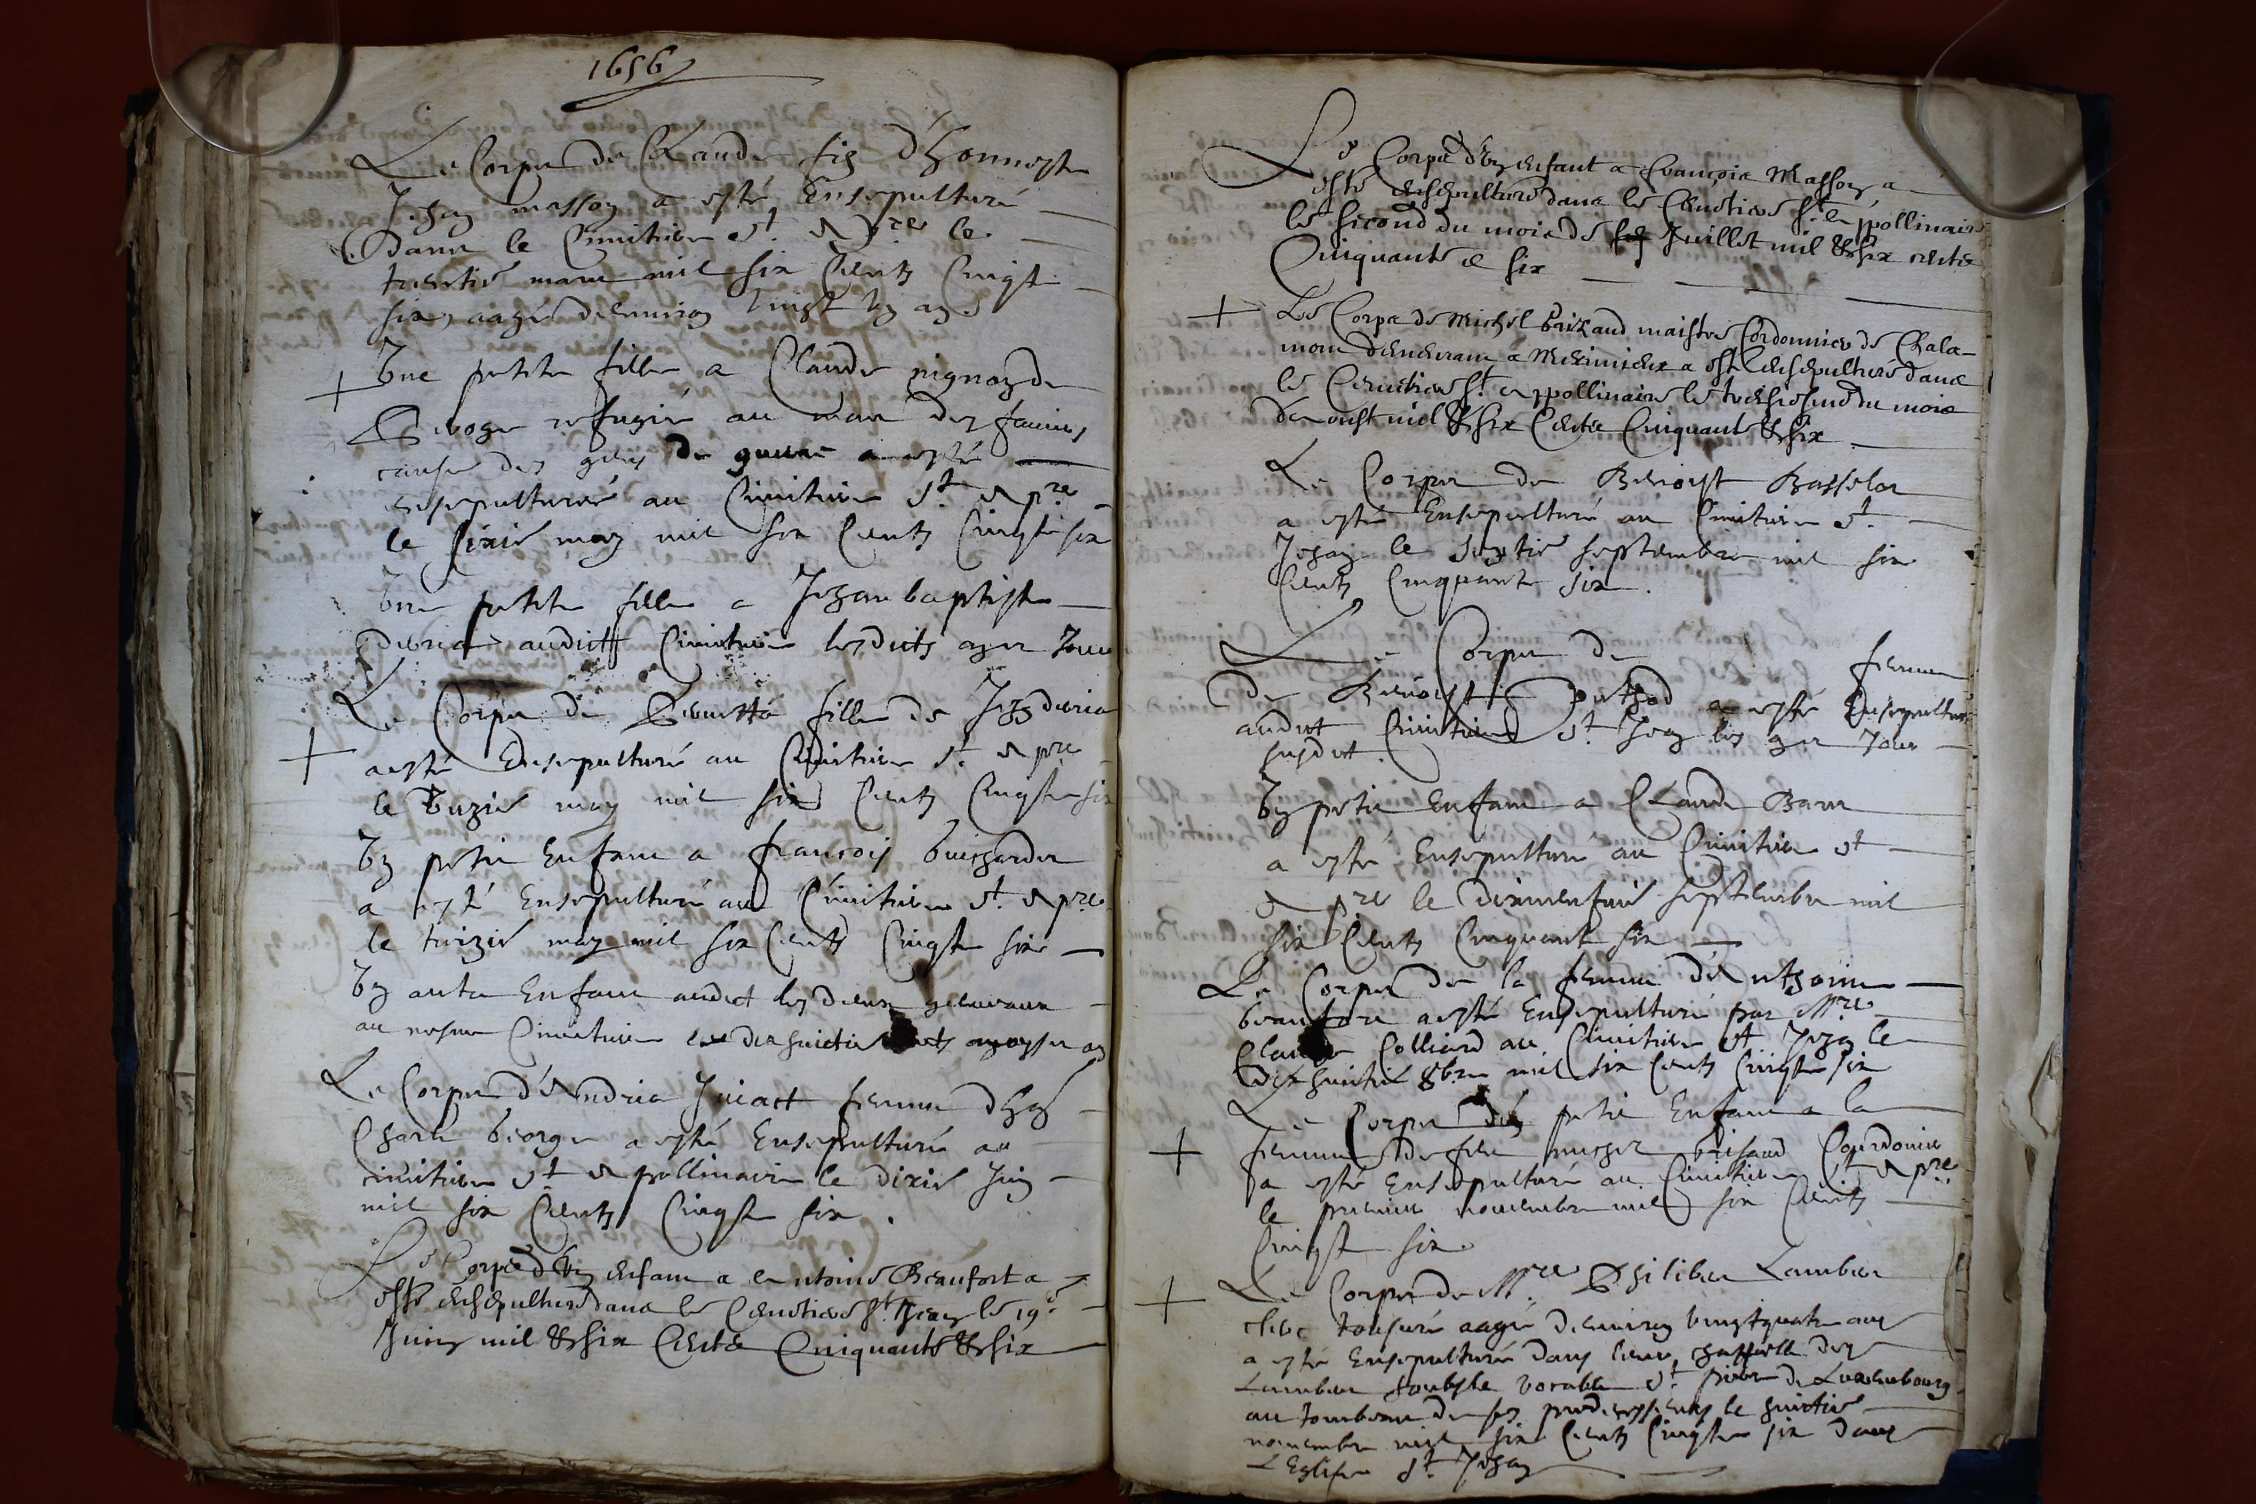 1656
Le Corps de Claude fils d'honneste
Jehan masson a esté Ensepulturé
Dans le Cimitiere St. Apre le
trentie mars mil six Cents Cinqte
six, aagé denviron vingt un an.
Une petite fille a Claude pignon de
refugié au mas des
cause des gens de guerre a esté
ensepulturée au Cimitiere St. Apre
le sixie may mil six Cents Cinqte six
Une petite fille a Jehan baptiste
audict Cimitiere lesdicts an et Jour
Le Corps de Pernette fille de Jehan
a esté Ensepulturé au Cimitiere St. Apre
le unzie may mil six Cents Cinqte six
Un petit Enfant a francois
a esté Ensepulturé au Cimitiere St. Apre
le treizie may mil six Cents Cinqte six
Un autre Enfant audict les deux gemeaux
au mesme Cimitiere le dixhuictie
Le Corps d'Andria femme
Charle George a esté Ensepulturé au
cimitiere St Apollinaire le dixie Juin
mil six Cents Cinqte six.
Le Corps d'un enfant a Antoine Beaufort a
esté ensepulturé dans le Cemetiere St. Jean le 19e
Juin mil & six Cents Cinquante & six
Le Corps d'un enfant a François Masson a
esté ensepulturé dans le Cemetiere St. Appollinaire
le second du mois de Juillet mil & six cents
Cinquante & six
Le Corps de Michel Brizaud maistre Cordonnier de Chala-
mon demeurant a Meximieux a esté ensepulturé dans
le Cemetiere St. Appollinaire le du mois
d'aoust mil & six Cents Cinquante & six
Le Corps de Benoist Basselar
a esté Ensepulturé au Cimitiere St.
Jehan le septie septembre mil six
Cents Cinquante six.
Le Corps de femme
De Benoist Puthod a esté Ensepulturé
audict Cimitiere St. Jean les an et Jour
susdict.
Un petit Enfant a Claude Barre
a esté Ensepulturé au Cimitiere St
Apre le dixneufvie septembre mil
six Cents Cinquante six
Le Corps de la femme d'Anthoine
beaufort a esté Ensepulturé par Mre
Claude Colliard au Cimitiere St Jehan le
dix huictie 8bre mil six Cents Cinqte six
Le Corps d'un petit Enfant a la
femme de feu michel brisaud Courdonnier
a esté Ensepulturé au Cimitiere St Apre
le premier novembre mil six Cents
Cinqte six.
Le Corps de Mre Philibert Lambert
clerc tonsuré aagé denviron vingtquatre ans
a esté Ensepulturé dans leur chappelle des
Lambert soubs le vocable St. pierre de Luxembourg
au tombeau de ses predecesseurs le huictie
novembre mil six Cents Cinqte six dans
L'Eglise St. Jehan